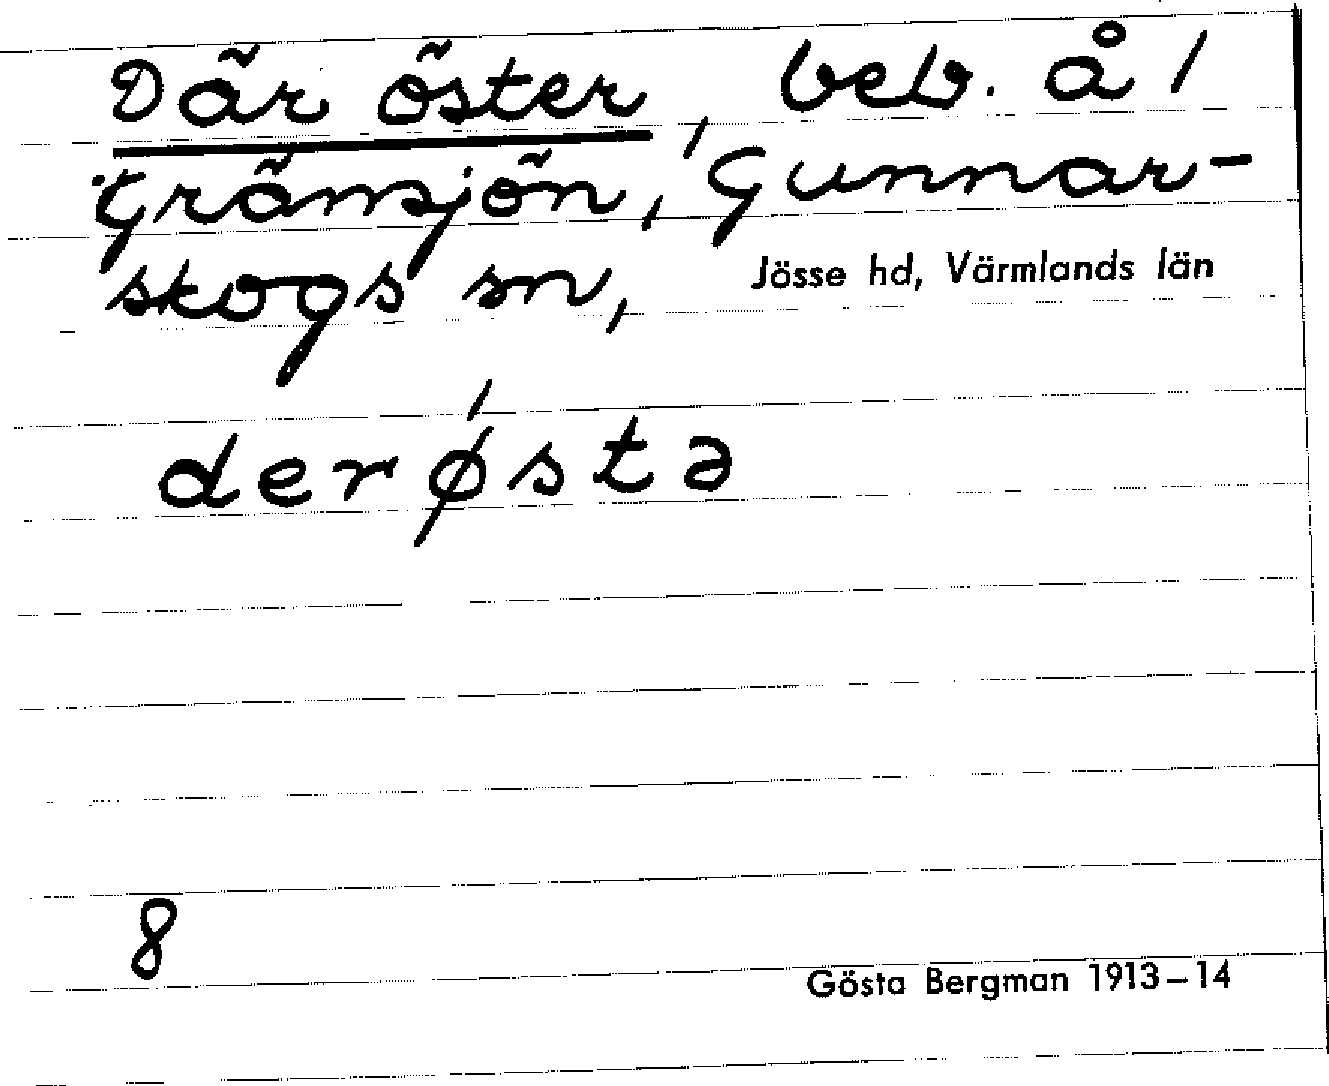 Där öster, beb. å 1
Gränsjön, Gunnar-
skogs sn, Jösse hd, Värmlands län
derǿstə
8
Gösta Bergman 1913–14